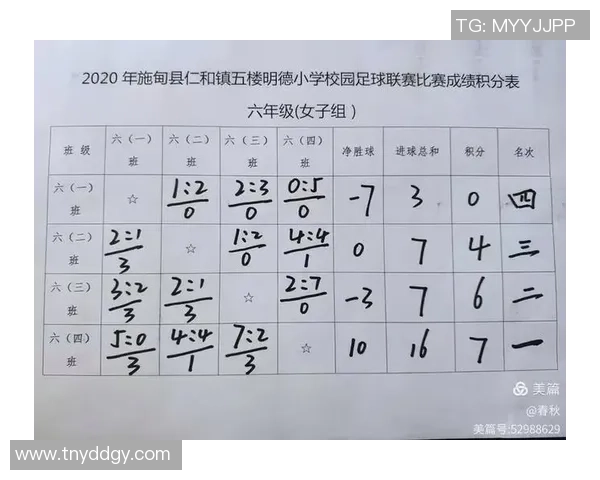 TG: MYYJJPP
2020年施甸县仁和镇五楼明德小学校园足球联赛比赛成绩积分表
六年级(女子组)
班级 六(一)班 六(二)班 六(三)班 六(四)班 净胜球 进球总和 积分 名次
六(一)班 ☆ 1:2/0 2:3/0 0:5/0 -7 3 0 四
六(二)班 2:1/3 ☆ 1:2/0 4:4/1 0 7 4 三
六(三)班 3:2/3 2:1/3 ☆ 2:7/0 -3 7 6 二
六(四)班 5:0/3 4:4/1 7:2/3 ☆ 10 16 7 一
美篇
@春秋
美篇号:52988629
www.tnyddgy.com